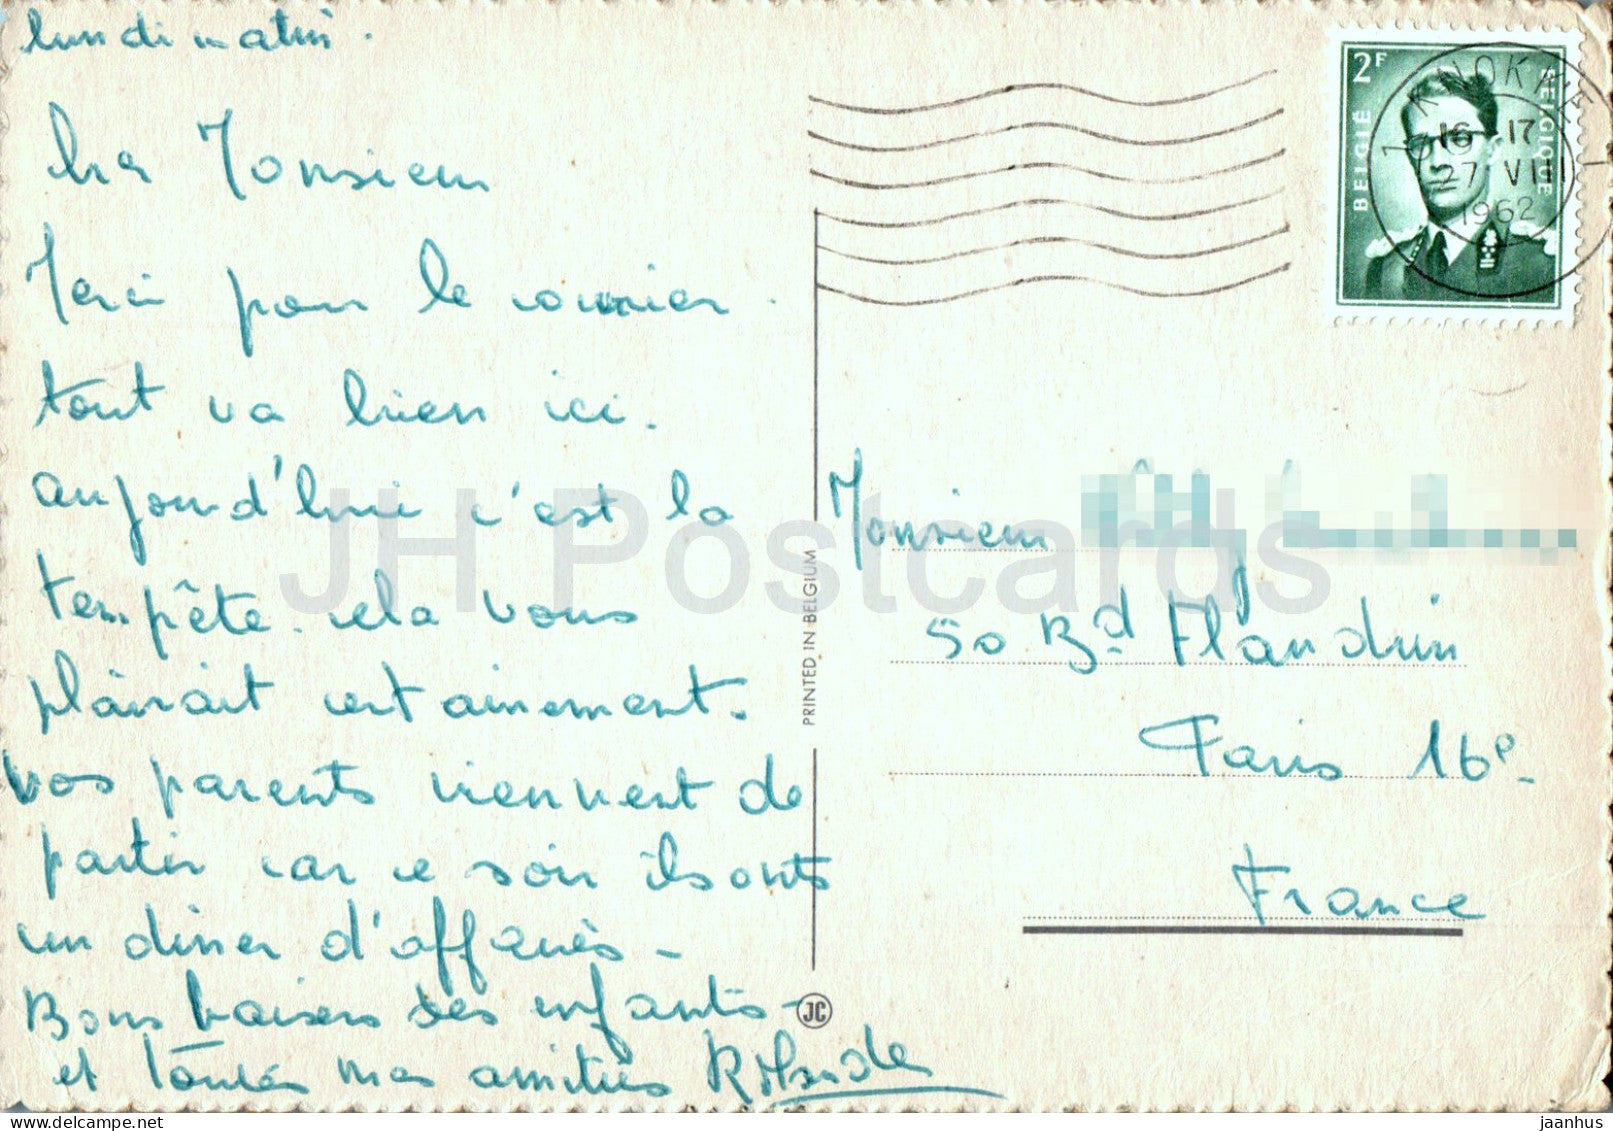 lundi matin.
Monsieur
Merci pour le courrier.
tout va bien ici.
aujourd'hui c'est la
tempête. cela vous
plairait certainement.
vos parents viennent de
partir car ce soir ils ont
un diner d'affaires -
Bons baisers des enfants -
et toutes mes amitiés
2F
BELGIË
BELGIQUE
KNOKKE
16-17
27 VIII
1962
PRINTED IN BELGIUM
JC
Monsieur
50 Bd Flandrin
Paris 16e -
France
JH Postcards
www.delcampe.net
jaanhus